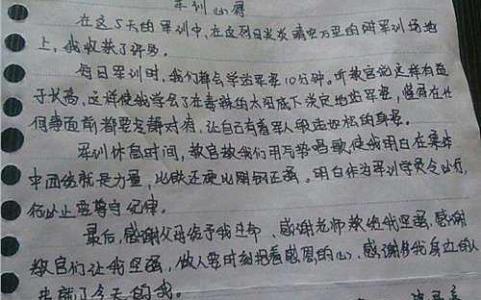 军训心得
在这5天的军训中,在这烈日炎炎晴空万里的的军训场地
上,我收获了许多。
每日军训时,我们都会学站军姿10分钟。听教官说这样有益
于长高,这样使我学会了在毒辣的太阳底下淡定地站军姿,懂得在任
何事面前都要冷静对待,让自己有着军人般挺拔的身姿。
军训休息时间,教官教我们用气势唱歌使我明白在集体
中团结就是力量,比铁还硬比钢还强。明白作为军训学员令必行,
行必止要尊守纪律。
最后,感谢父母给予我生命、感谢老师教给我坚强,感谢
教官们让我坚强,做人要时刻抱着感恩的心、感谢身边的人
今天的我。